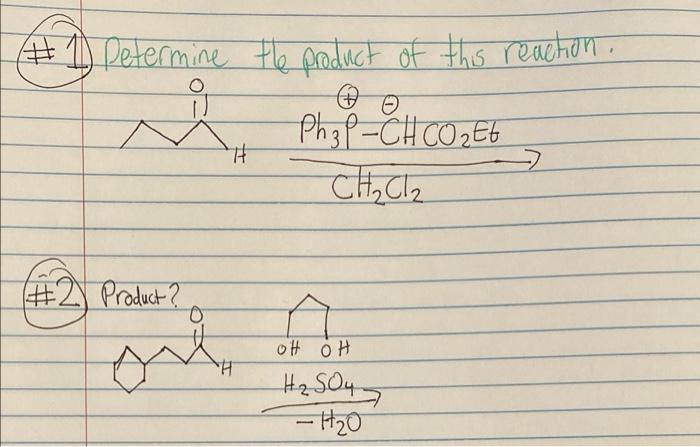 #1 Determine the product of this reaction.
O
H
⊕ ⊖
Ph3P-CHCO2Et
CH2Cl2
#2 Product?
O
H
OH OH
H2SO4
- H2O